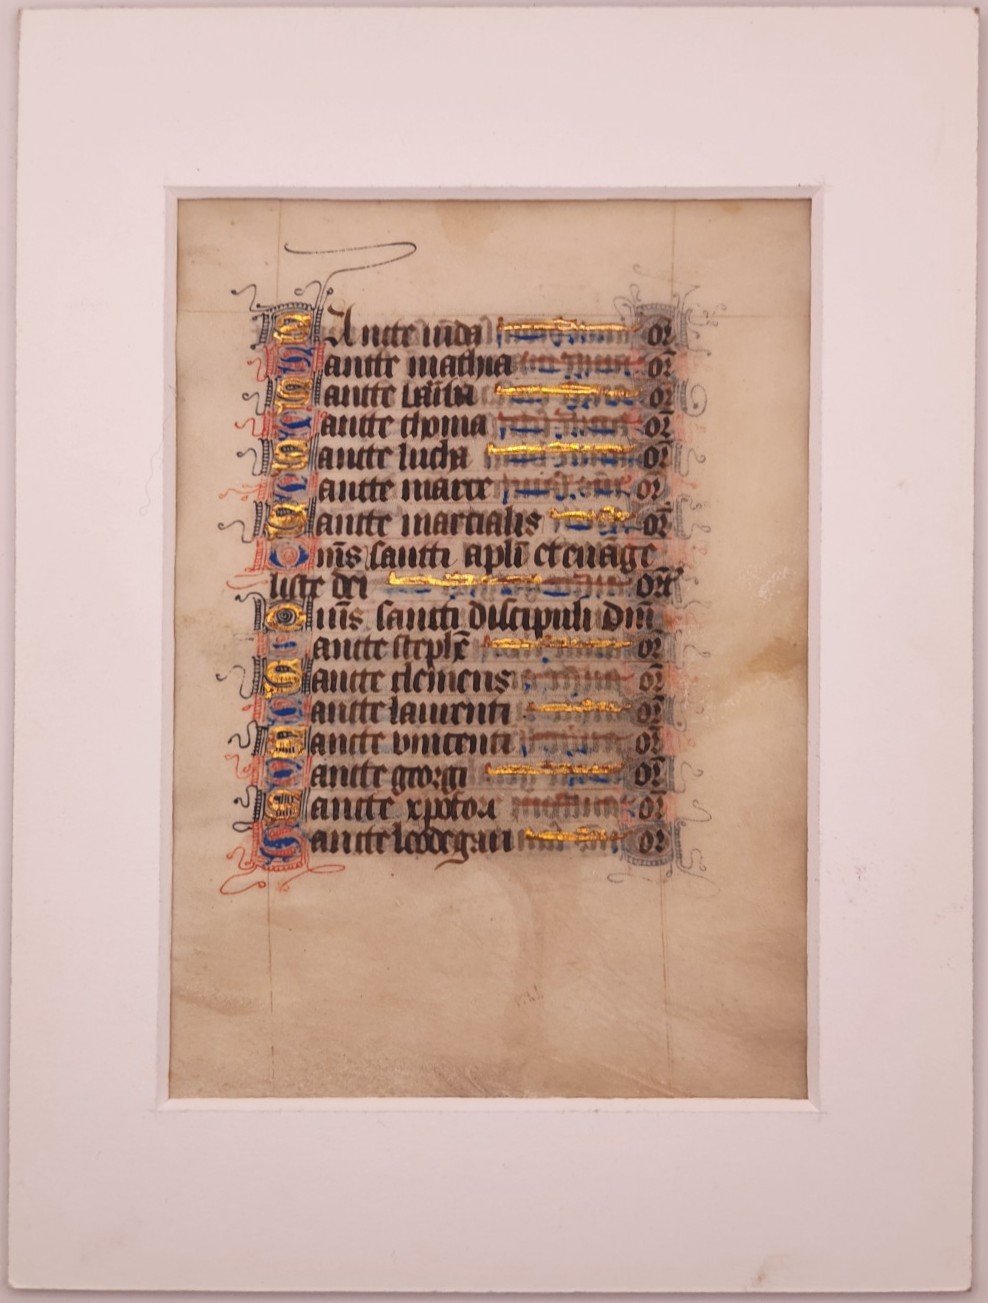 SAncte iuda or
Sancte mathia or
Sancte barnaba or
Sancte thoma or
Sancte lucha or
Sancte marce or
Sancte martialis or
Om̄s sancti apl̄i et euāge
liste dei orāt
Om̄s sancti discipuli dn̄i
Sancte steph̄e or
Sancte clemens or
Sancte laurenti or
Sancte vincenti or
Sancte georgi or
Sancte xp̄ofore or
Sancte leodegari or